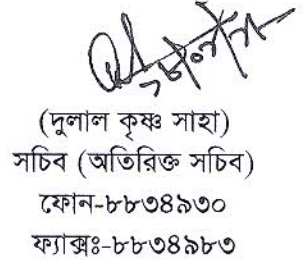 (দুলাল কৃষ্ণ সাহা)
সচিব (অতিরিক্ত সচিব)
ফোন-৮৮৩৪৯৩০
ফ্যাক্সঃ-৮৮৩৪৯৮৩